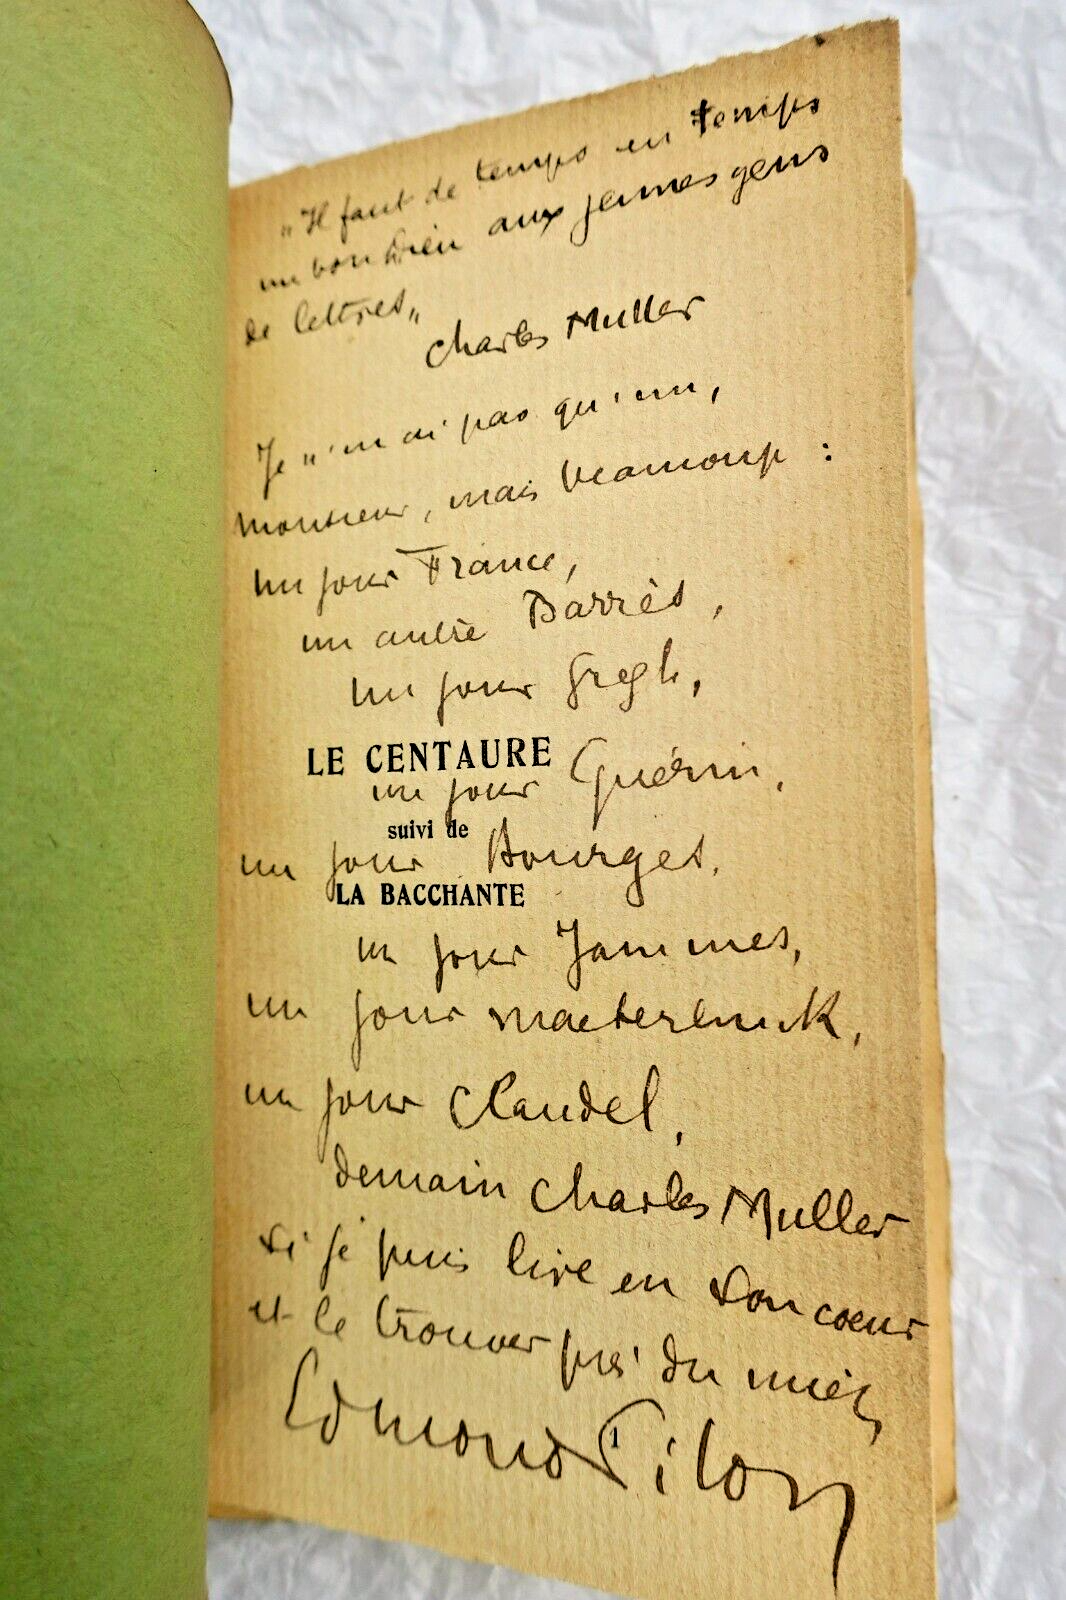 "Il faut de temps en temps
un bon Dieu aux jeunes gens
de lettres"
Charles Muller
Je n'en ai pas qu'un,
monsieur, mais beaucoup :
un jour France,
un autre Barrès,
un jour Gregh,
LE CENTAURE
un jour Guérin,
suivi de
un jour Bourges,
LA BACCHANTE
un jour Jammes,
un jour Maeterlinck,
un jour Claudel,
demain Charles Muller
si je puis lire en son cœur
et le trouver près du mien
Edmond Pilon